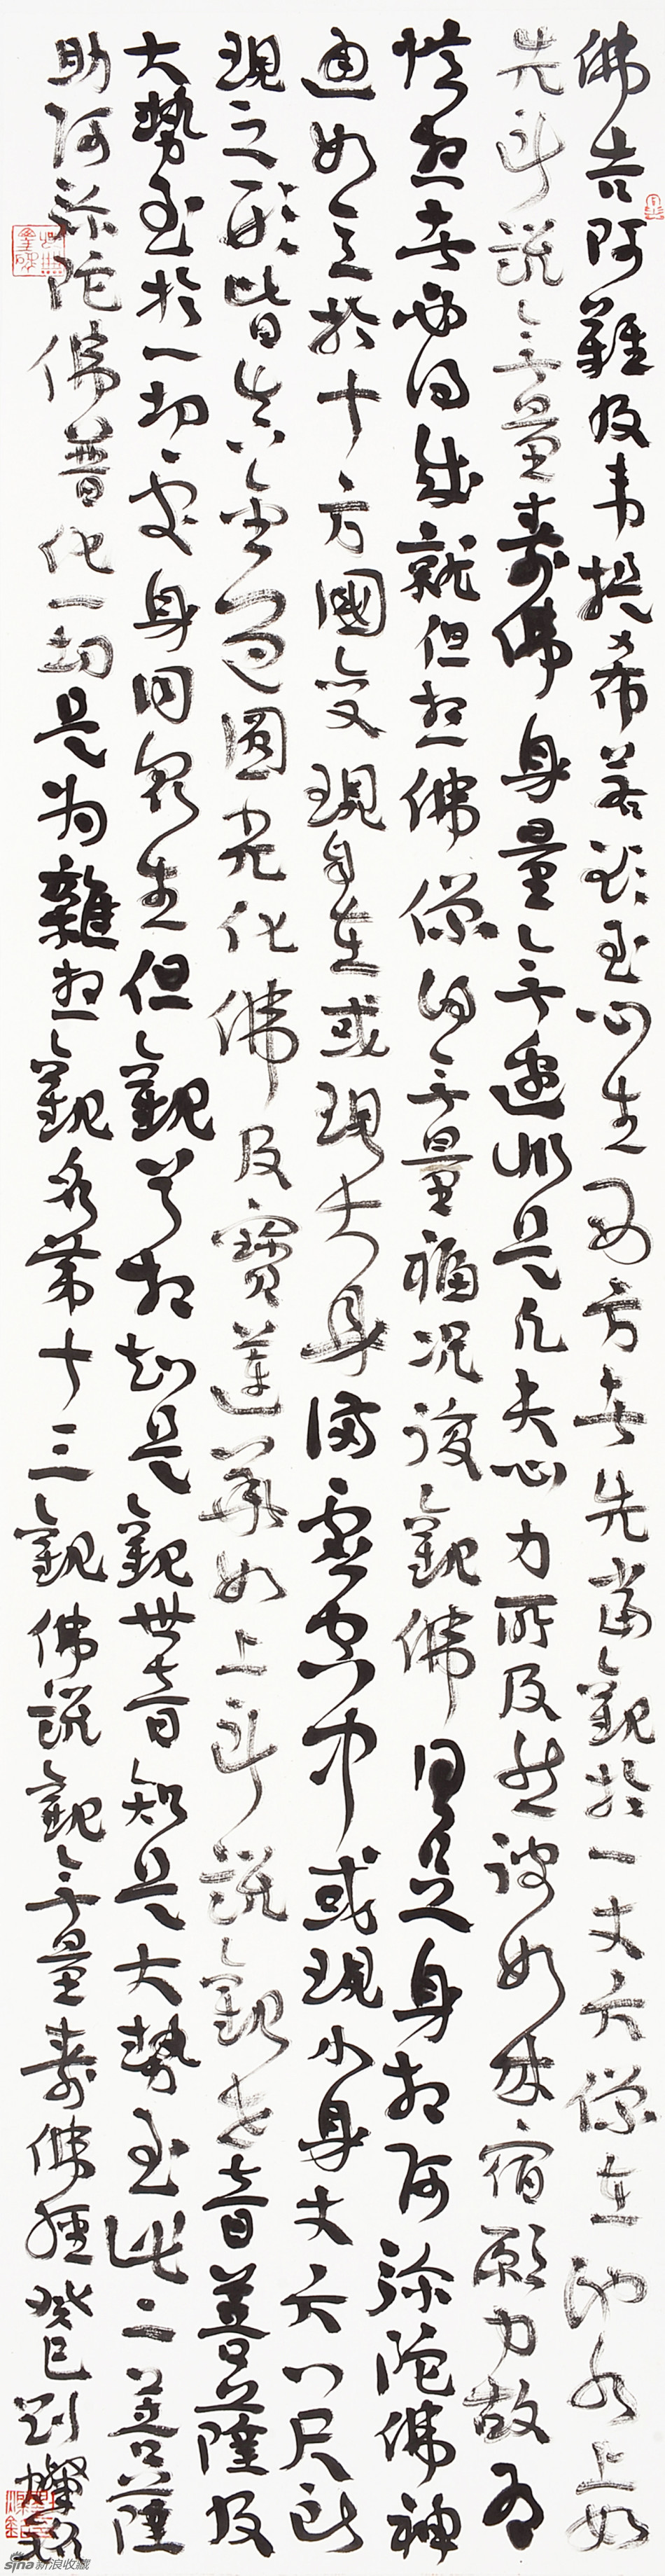 佛告阿難及韋提希若欲至心生西方者先當觀於一丈六像在池水上如
先所說無量壽佛身量無邊非是凡夫心力所及然彼如來宿願力故有
憶想者必得成就但想佛像得無量福況復觀佛具足身相阿彌陀佛神
通如意於十方國變現自在或現大身滿虛空中或現小身丈六八尺所
現之形皆真金色圓光化佛及寶蓮華如上所說觀世音菩薩及
大勢至於一切處身同眾生但觀首相知是觀世音知是大勢至此二菩薩
助阿彌陀佛普化一切是為雜想觀名第十三觀佛說觀無量壽佛經癸巳劉燦銘
sina新浪收藏